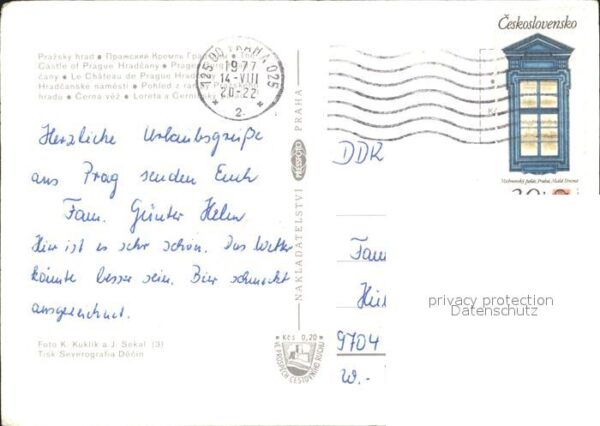 Pražský hrad • Пражский Кремль Град
Castle of Prague Hradčany • Prager
čany • Le Château de Prague Hrad
Hradčanské náměstí • Pohled z
hradu • Černá věž • Loreta a Černínský
125 00 PRAHA 025
1977
14-VIII
20-22
* 2 *
Československo
Herzliche Urlaubsgrüße
aus Prag senden Euch
Fam. Günter Helm
Hier ist es sehr schön. Das Wetter
könnte besser sein. Bier schmeckt
ausgezeichnet.
Foto K. Kuklík a J. Sekal (3)
Tisk Severografia Děčín
NAKLADATELSTVÍ PRESSFOTO PRAHA
Kčs 0,20
VE PROSPĚCH CESTOVNÍHO RUCHU
DDR
Fam
9704
W.-
privacy protection
Datenschutz